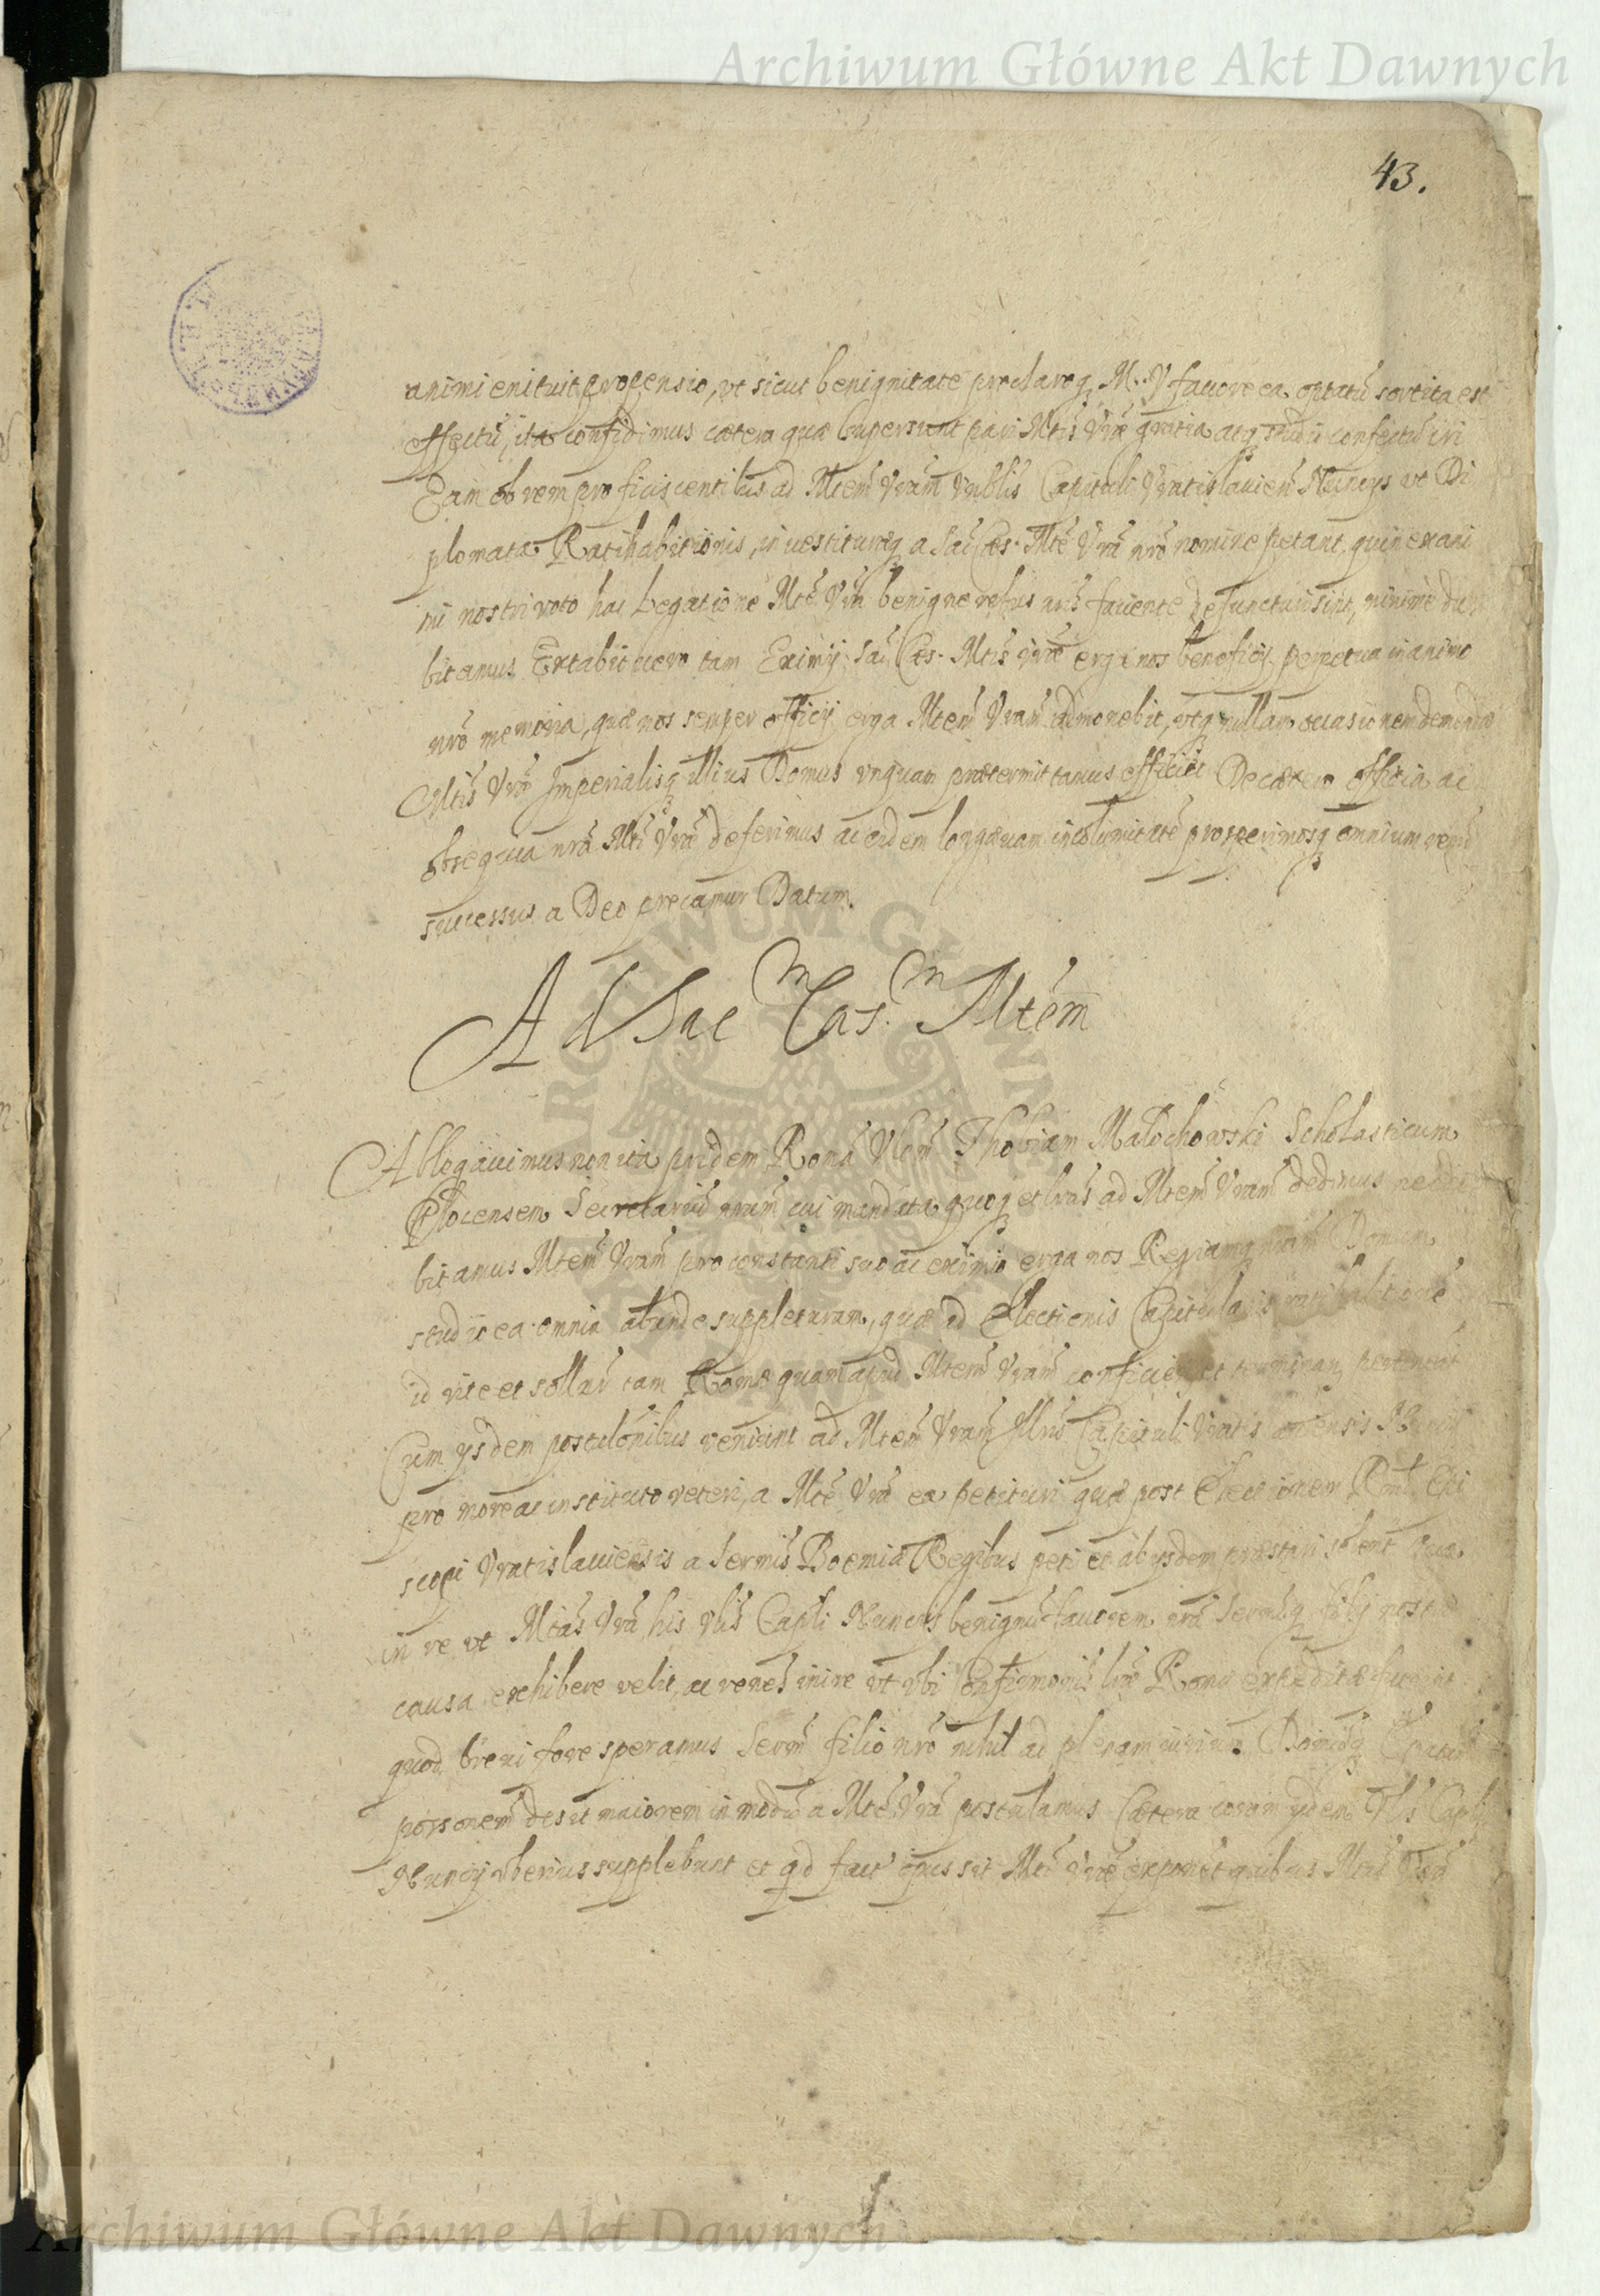 Archiwum Główne Akt Dawnych
43.
animi enituit propensio, vt sicut benignitate præclaroq M. V fauore ea optatũ sortita est
effectũ, ita confidimus cætera quæ supersunt pari Mtis Vræ gratia atq studio confectũ iri
Eam ob rem proficiscentibus ad Mtem Vram Vnblis Capituli Vratislauien Nuncijs vt Di
plomata Ratihabitionis, inuestituræq a Sac Cæs. Mte Vra nro nomine petant, quin ex ani
mi nostri voto hac Legatione Mte Vra benigne rebus nris fauente defuncturi sint, minime du
bitamus Extabit uero tam Eximij Sac Cæs. Mtis Vræ erga nos beneficij perpetua in animo
nro memoria, quæ nos semper officij erga Mtem Vram admonebit, vtq nullam occasionem demerendæ
Mtis Vræ Imperialisq illius Domus vnquam prætermittamus efficiet De cætero officia ac
obsequia nra Mti Vræ deferimus ac eidem longæuam incolumitatẽ prosperrimosq omnium rerũ
successus a Deo precamur Datum.
Ad Sac m Cæs. m Mtem
Ablegauimus non ita pridem Romã Vblem Thobiam Małochowski Scholasticum
Plocensem Secretariũ nrum cui mandata quoq et lras ad Mtem Vram dedimus nec du
bitamus Mtem Vram pro constanti suo ac eximio erga nos Regiamq nram Domum
studio ea omnia abunde suppleturam, quæ ad Electionis Capitularis ratihabitionẽ
id rite et sollãr tam Romæ quam apud Mtem Vram confici et terminari pertineãt
Cum ysdem postulõnibus veniunt ad Mtem Vram Vblis Capituli Vratislauiensis Nuncij
pro more ac instituto veteri, a Mte Vra ea petituri quæ post Electionem Rndi Epi
scopi Vratislauiensis a Sermis Boemiæ Regibus peti et ab ysdem præstari solent Qua
in re vt Mtas Vra his Vblis Capli Nuncijs benignũ fauorem nra Sermiq filij nostri
causa exhibere velit, ac rõnes inire vt vbi Confirmonis lræ Roma expeditæ fuerint
quod breui fore speramus Sermo filio nro nihil ad plenam iurium Domusq Episcopal
possonem desit maiorem in modũ a Mte Vra postulamus Cætera coram ydem Vblis Capli
Nuncij vberius supplebunt et qd facto opus sit Mti Vræ exponẽt quibus Mtas Vra
Archiwum Główne Akt Dawnych